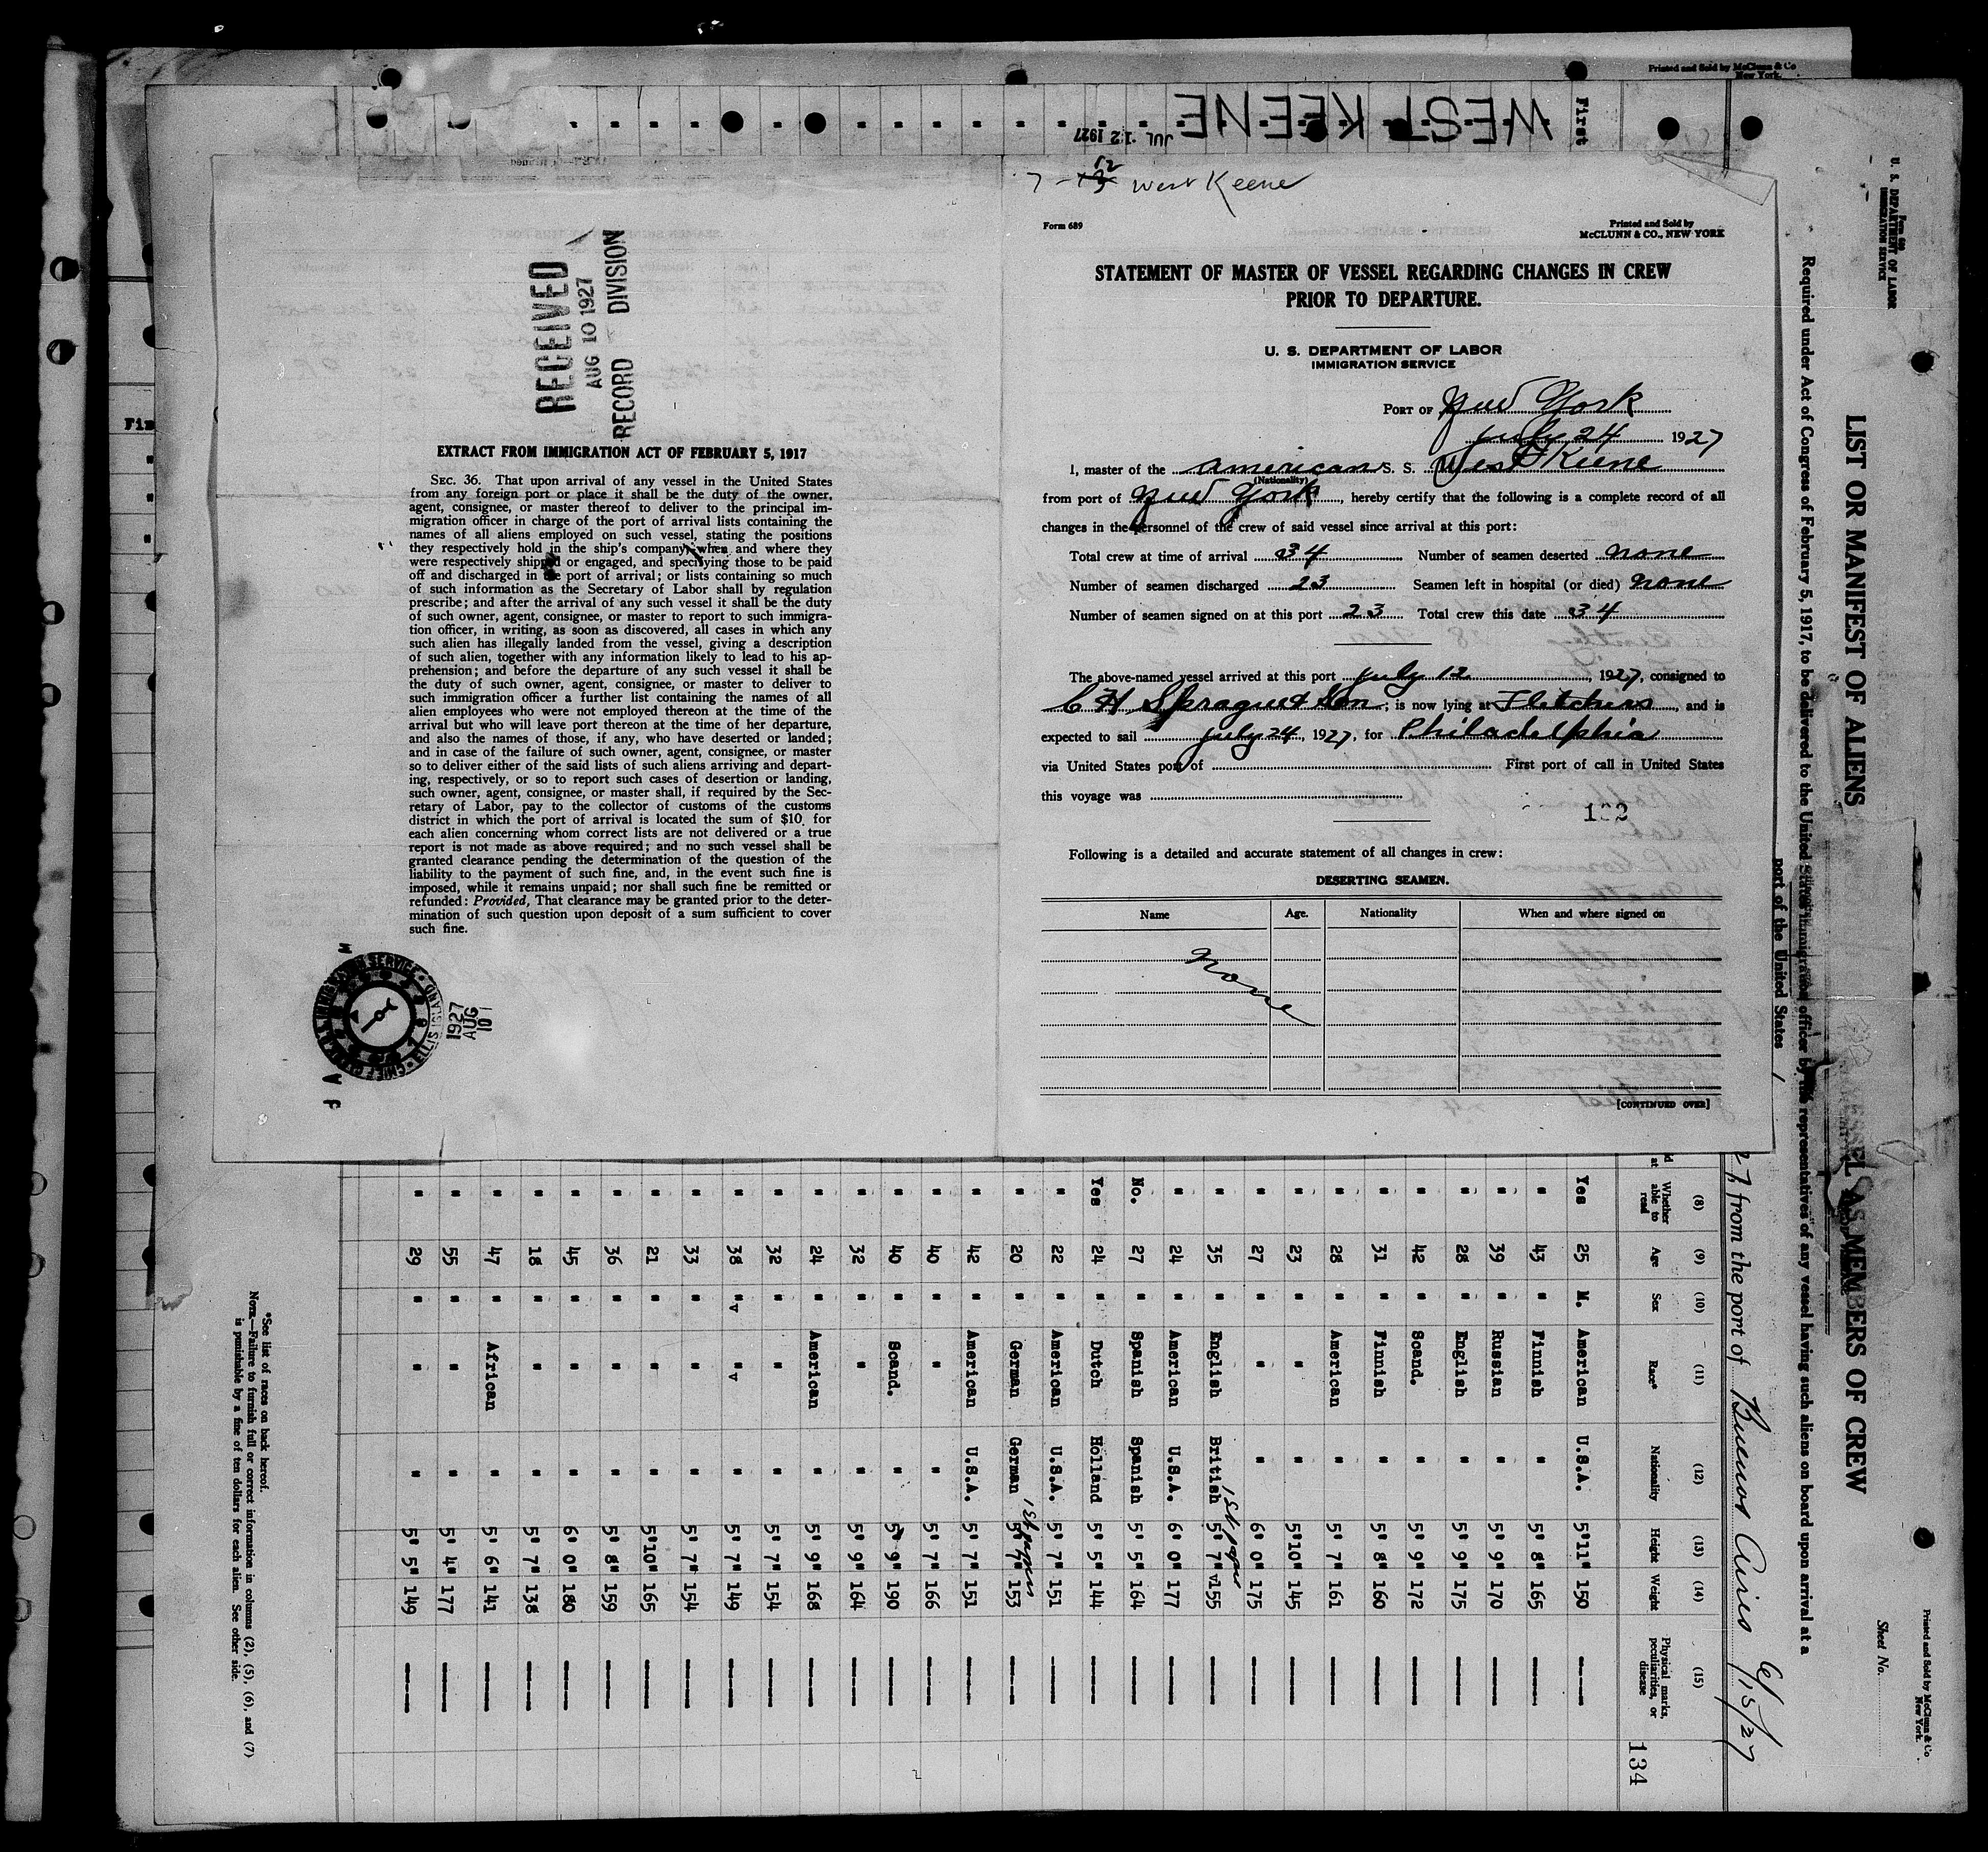 Printed and Sold by McClunn & Co
New York.
First
WEST KEENE
JUL 12 1927
7 - 12 West Keene
Form 689
Printed and Sold by
McCLUNN & CO., NEW YORK
STATEMENT OF MASTER OF VESSEL REGARDING CHANGES IN CREW
PRIOR TO DEPARTURE.
U. S. DEPARTMENT OF LABOR
IMMIGRATION SERVICE
PORT OF New York
July 24 1927
I, master of the American S. S. West Keene
(Nationality)
from port of New York, hereby certify that the following is a complete record of all
changes in the personnel of the crew of said vessel since arrival at this port:
Total crew at time of arrival 34 Number of seamen deserted none
Number of seamen discharged 23 Seamen left in hospital (or died) none
Number of seamen signed on at this port 23 Total crew this date 34
The above-named vessel arrived at this port July 12, 1927, consigned to
C H Sprague & Son; is now lying at Fletchers, and is
expected to sail July 24, 1927, for Philadelphia
via United States port of First port of call in United States
this voyage was
Following is a detailed and accurate statement of all changes in crew:
DESERTING SEAMEN.
Name Age. Nationality When and where signed on
None
[CONTINUED OVER]
RECEIVED
AUG 10 1927
RECORD DIVISION
EXTRACT FROM IMMIGRATION ACT OF FEBRUARY 5, 1917
SEC. 36. That upon arrival of any vessel in the United States
from any foreign port or place it shall be the duty of the owner,
agent, consignee, or master thereof to deliver to the principal im-
migration officer in charge of the port of arrival lists containing the
names of all aliens employed on such vessel, stating the positions
they respectively hold in the ship's company, when and where they
were respectively shipped or engaged, and specifying those to be paid
off and discharged in the port of arrival; or lists containing so much
of such information as the Secretary of Labor shall by regulation
prescribe; and after the arrival of any such vessel it shall be the duty
of such owner, agent, consignee, or master to report to such immigra-
tion officer, in writing, as soon as discovered, all cases in which any
such alien has illegally landed from the vessel, giving a description
of such alien, together with any information likely to lead to his ap-
prehension; and before the departure of any such vessel it shall be
the duty of such owner, agent, consignee, or master to deliver to
such immigration officer a further list containing the names of all
alien employees who were not employed thereon at the time of the
arrival but who will leave port thereon at the time of her departure,
and also the names of those, if any, who have deserted or landed;
and in case of the failure of such owner, agent, consignee, or master
so to deliver either of the said lists of such aliens arriving and depart-
ing, respectively, or so to report such cases of desertion or landing,
such owner, agent, consignee, or master shall, if required by the Sec-
retary of Labor, pay to the collector of customs of the customs
district in which the port of arrival is located the sum of $10 for
each alien concerning whom correct lists are not delivered or a true
report is not made as above required; and no such vessel shall be
granted clearance pending the determination of the question of the
liability to the payment of such fine, and, in the event such fine is
imposed, while it remains unpaid; nor shall such fine be remitted or
refunded: Provided, That clearance may be granted prior to the deter-
mination of such question upon deposit of a sum sufficient to cover
such fine.
ELLIS ISLAND
1927
AUG
10
Form 689
U. S. DEPARTMENT OF LABOR
IMMIGRATION SERVICE
Printed and Sold by McClunn & Co
New York.
Sheet No.
LIST OR MANIFEST OF ALIENS AS MEMBERS OF CREW
Required under Act of Congress of February 5, 1917, to be delivered to the United States immigration officer by the representatives of any vessel having such aliens on board upon arrival at a
port of the United States
27, from the port of Buenos Aires 6/15/27
134
(8) (9) (10) (11) (12) (13) (14) (15)
Whether able to read Age Sex Race* Nationality Height Weight Physical marks, peculiarities, or disease
Yes 25 M. American U.S.A. 5'11" 150
" 43 " Finnish " 5' 8" 165
" 39 " Russian " 5' 9" 170
" 28 " English " 5' 9" 175
" 42 " Scand. " 5' 9" 172
" 31 " Finnish " 5' 8" 160
" 28 " American " 5' 7" 161
" 23 " " " 5'10" 145
" 27 " " " 6' 0" 175
" 35 " English British 1st papers 5' 7" 155
" 24 " American U.S.A. 6' 0" 177
No. 27 " Spanish Spanish 5' 5" 164
Yes 24 " Dutch Holland 5' 5" 144
" 22 " American U.S.A. 5' 7" 151
" 20 " German German 1st papers 5' 7" 153
" 42 " American U.S.A. 5' 7" 151
" 40 " " " 5' 7" 166
" 40 " Scand. " 5' 9" 190
" 32 " " " 5' 9" 164
" 24 " American " 5' 9" 168
" 32 " " " 5' 7" 154
" 38 " " " 5' 7" 149
" 33 " " " 5' 7" 154
" 21 " " " 5'10" 165
" 36 " " " 5' 8" 159
" 45 " " " 6' 0" 180
" 18 " " " 5' 7" 138
" 47 " African " 5' 6" 141
" 55 " " " 5' 4" 177
" 29 " " " 5' 5" 149
*See list of races on back hereof.
NOTE—Failure to furnish full or correct information in columns (2), (5), (6), and (7)
is punishable by a fine of ten dollars for each alien. See other side.